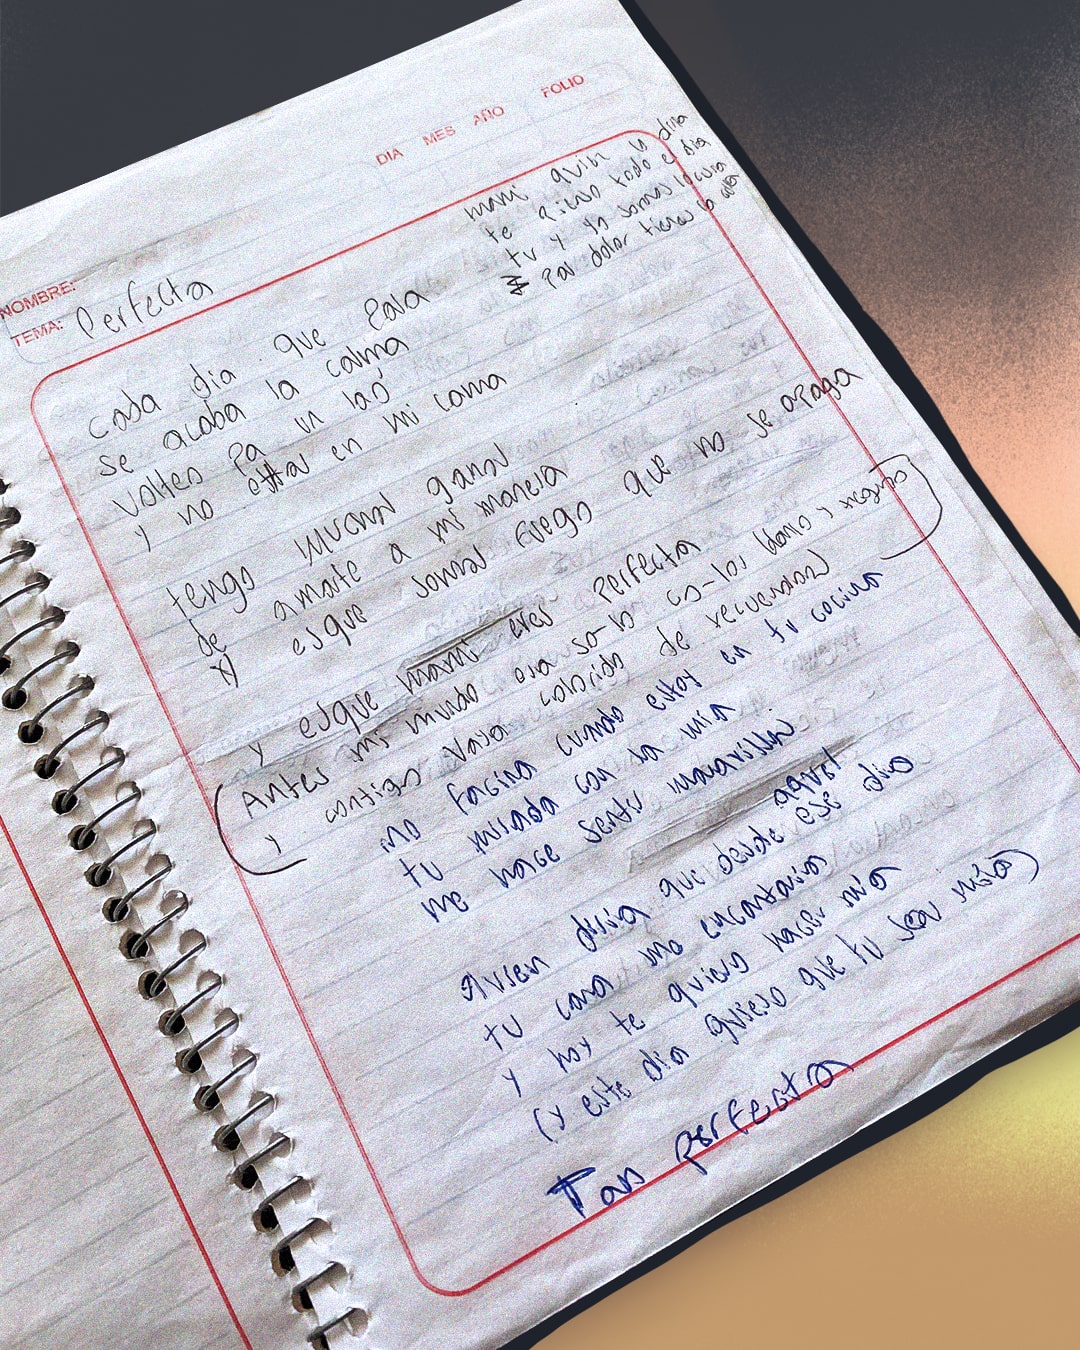 DIA MES AÑO FOLIO
NOMBRE:
TEMA: Perfecta
mami quien lo diria
te pienso todo el dia
tu y yo somos locura
pal dolor tienes la cura
Cada dia que pasa
se acaba la calma
volteo pa un lao
y no estas en mi cama
tengo muchas ganas
de amarte a mi manera
y esque somos fuego que no se apaga
y esque mami eres perfecta
(Antes mi mundo era so-lo co-los blanco y negro
y contigo vaya colorido de recuerdos)
me fascina cuando estoy en tu cocina
tu mirada con la mia
me hace sentir maravillas
aquel
quien diria que desde ese dia
tu cara me encantaria
y hoy te quiero hacer mia
(y este dia quiero que tu seas mia)
Tan perfecta